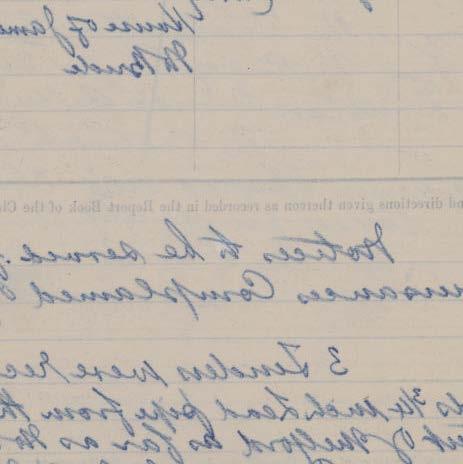 House of Jame
McBride
nd directions given thereon as recorded in the Report Book of the Cl
Notices to be served
nuisances Complained
3 Tenders were Rec
ds 3/4 inch Lead pipe from th
of Milford as far as